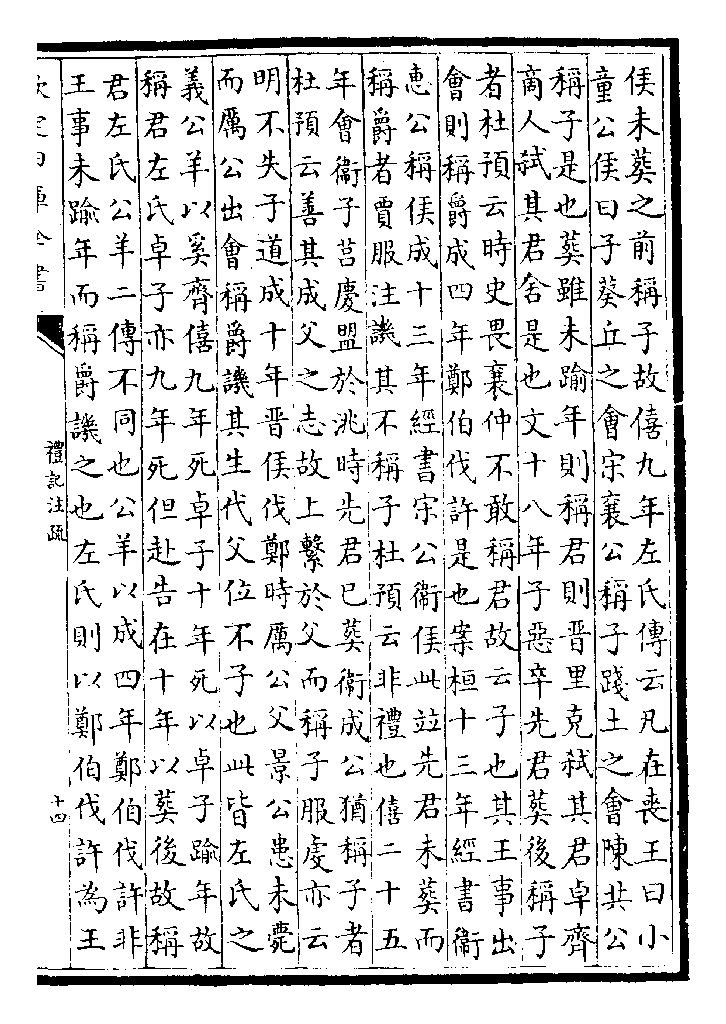 侯未葬之前稱子故僖九年左氏傳云凡在喪王曰小
童公侯曰子葵丘之會宋襄公稱子踐土之會陳共公
稱子是也葬雖未踰年則稱君則晉里克弑其君卓齊
商人弑其君舍是也文十八年子惡卒先君葬後稱子
者杜預云時史畏襄仲不敢稱君故云子也其王事出
會則稱爵成四年鄭伯伐許是也案桓十三年經書衞
惠公稱侯成十三年經書宋公衞侯此竝先君未葬而
稱爵者賈服注譏其不稱子杜預云非禮也僖二十五
年會衞子莒慶盟於洮時先君已葬衞成公猶稱子者
杜預云善其成父之志故上繫於父而稱子服䖍亦云
明不失子道成十年晉侯伐鄭時厲公父景公患未薨
而厲公出會稱爵譏其生代父位不子也此皆左氏之
義公羊以奚齊僖九年死卓子十年死以卓子踰年故
稱君左氏卓子亦九年死但赴告在十年以葬後故稱
君左氏公羊二傳不同也公羊以成四年鄭伯伐許非
王事未踰年而稱爵譏之也左氏則以鄭伯伐許為王
欽定四庫全書
禮記注疏
十四